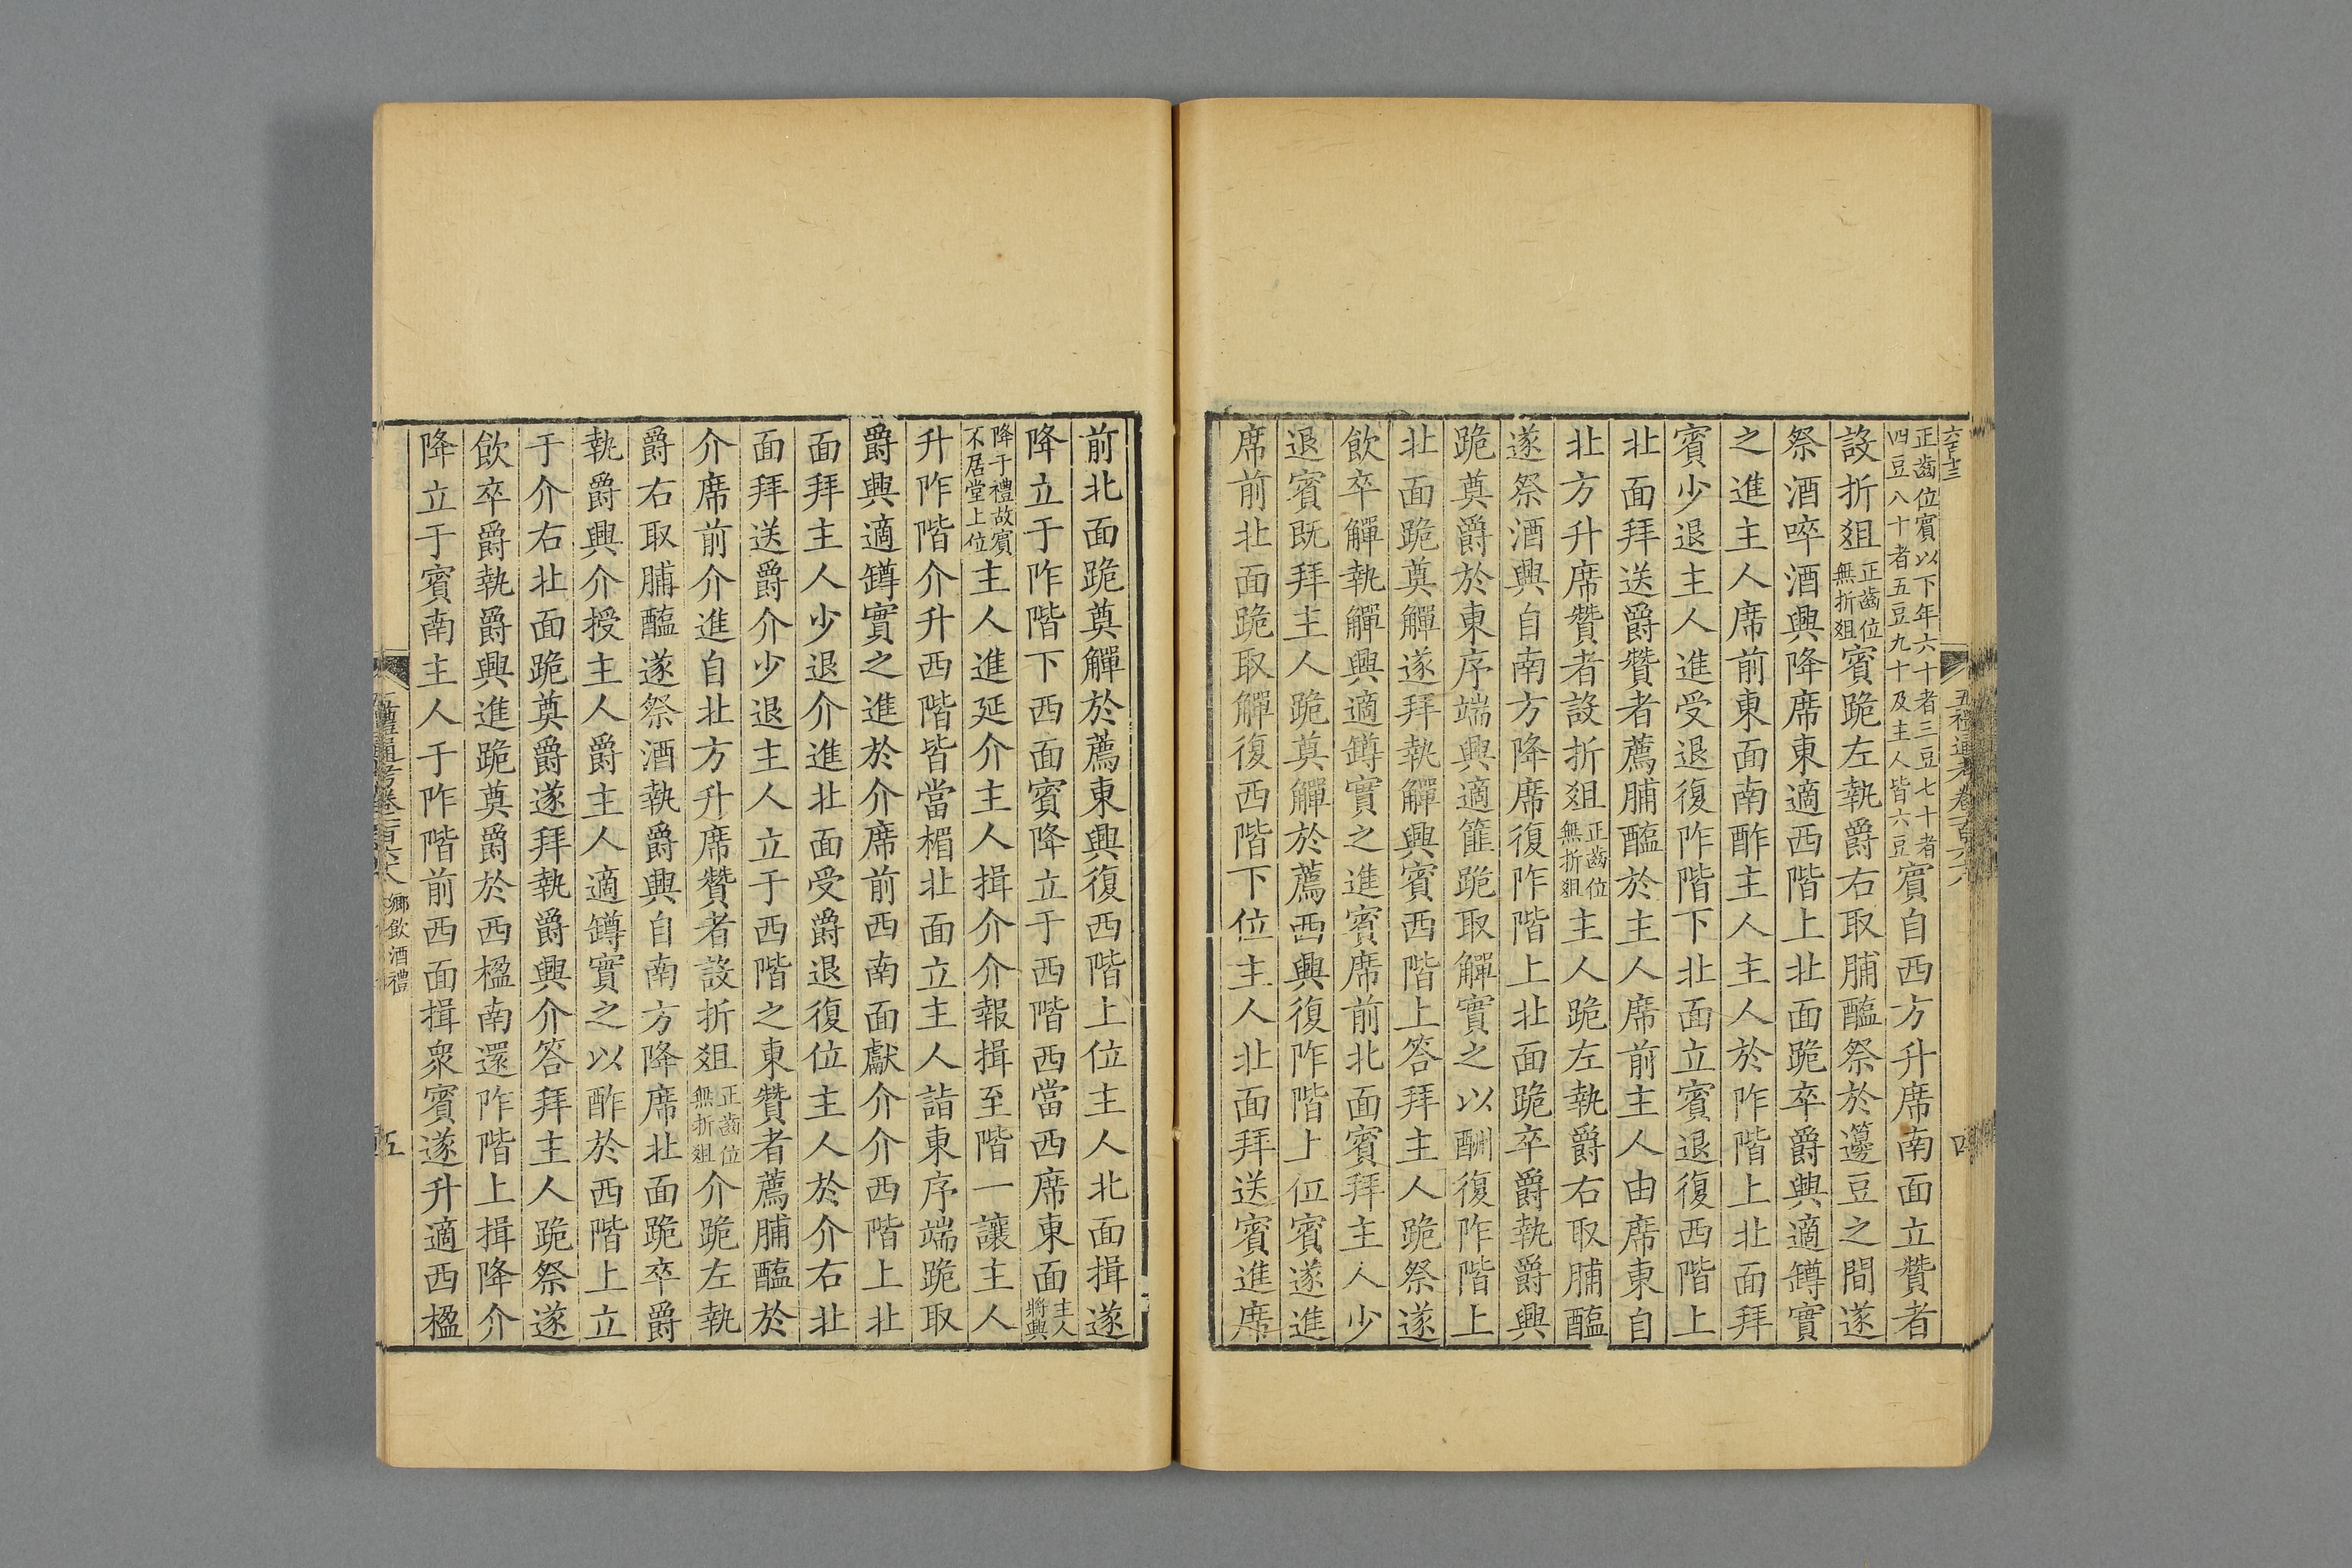 六百十三
五禮通考卷一百六十八
四
正齒位賓以下年六十者三豆七十者四豆八十者五豆九十及主人皆六豆賓自西方升席南面立贊者
設折俎正齒位無折俎賓跪左執爵右取脯醢祭於籩豆之間遂
祭酒啐酒興降席東適西階上北面跪卒爵興適罇實
之進主人席前東面南酢主人主人於阼階上北面拜
賓少退主人進受退復阼階下北面立賓退復西階上
北面拜送爵贊者薦脯醢於主人席前主人由席東自
北方升席贊者設折俎正齒位無折俎主人跪左執爵右取脯醢
遂祭酒興自南方降席復阼階上北面跪卒爵執爵興
跪奠爵於東序端興適篚跪取觶實之以酬復阼階上
北面跪奠觶遂拜執觶興賓西階上答拜主人跪祭遂
飲卒觶執觶興適罇實之進賓席前北面賓拜主人少
退賓既拜主人跪奠觶於薦西興復阼階上位賓遂進
席前北面跪取觶復西階下位主人北面拜送賓進席
前北面跪奠觶於薦東興復西階上位主人北面揖遂
降立于阼階下西面賓降立于西階西當西席東面主人將興
降于禮故賓不居堂上位主人進延介主人揖介介報揖至階一讓主人
升阼階介升西階皆當楣北面立主人詣東序端跪取
爵興適罇實之進於介席前西南面獻介介西階上北
面拜主人少退介進北面受爵退復位主人於介右北
面拜送爵介少退主人立于西階之東贊者薦脯醢於
介席前介進自北方升席贊者設折俎正齒位無折俎介跪左執
爵右取脯醢遂祭酒執爵興自南方降席北面跪卒爵
執爵興介授主人爵主人適罇實之以酢於西階上立
于介右北面跪奠爵遂拜執爵興介答拜主人跪祭遂
飲卒爵執爵興進跪奠爵於西楹南還阼階上揖降介
降立于賓南主人于阼階前西面揖眾賓遂升適西楹
鄉飲酒禮
五